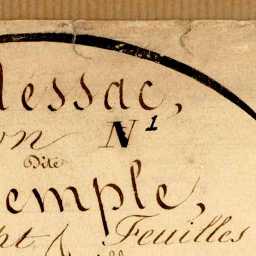 lessac,
on N 1
Dite
emple,
pt Feuilles